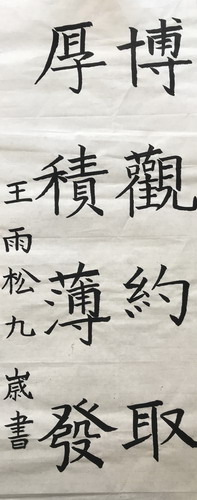 博觀約取
厚積薄發
王雨松九歲書